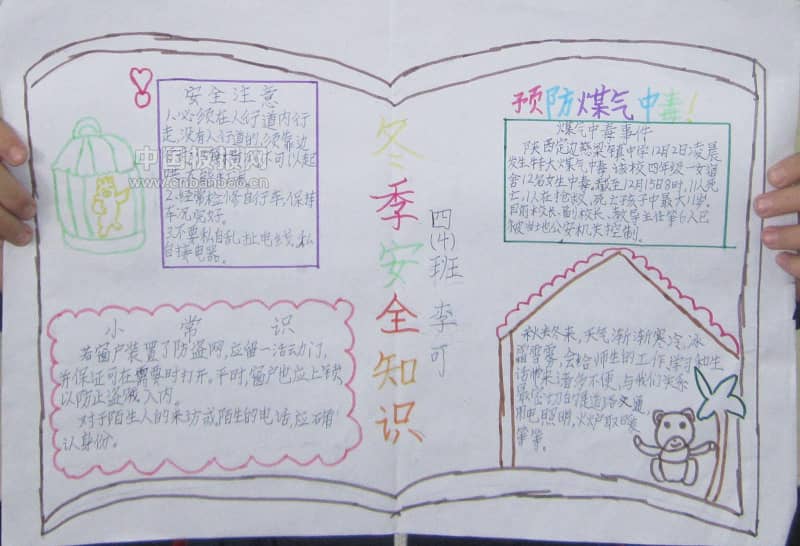 安全注意
1.必须在人行道内行
走,没有人行道的,须靠边
2.经常检修自行车,保持
车况完好。
3.不要私自乱扯电线,私
自接电器。
中国板报网
www.cnbanbao.cn
小常识
若窗户装置了防盗网,应留一活动门,
并保证可在需要时打开。平时,窗户也应上锁
以防止盗贼入内。
对于陌生人的来访或陌生的电话,应确
认身份。
冬季安全知识
四(4)班 李可
预防煤气中毒!
煤气中毒事件
陕西定边 中学12月2日凌晨
发生特大煤气中毒,该校四年级一女宿
舍12名女生中毒,截至12月15日8时,11人死
亡,1人在抢救,死亡孩子中最大11岁。
目前校长、副校长、教导主任等6人已
被当地公安机关控制。
秋去冬来,天气渐渐寒冷,冰
霜雪雾,会给师生的工作、学习和生
活带来诸多不便,与我们关系
最密切的是道路交通,
用电照明,火炉取暖
等等。